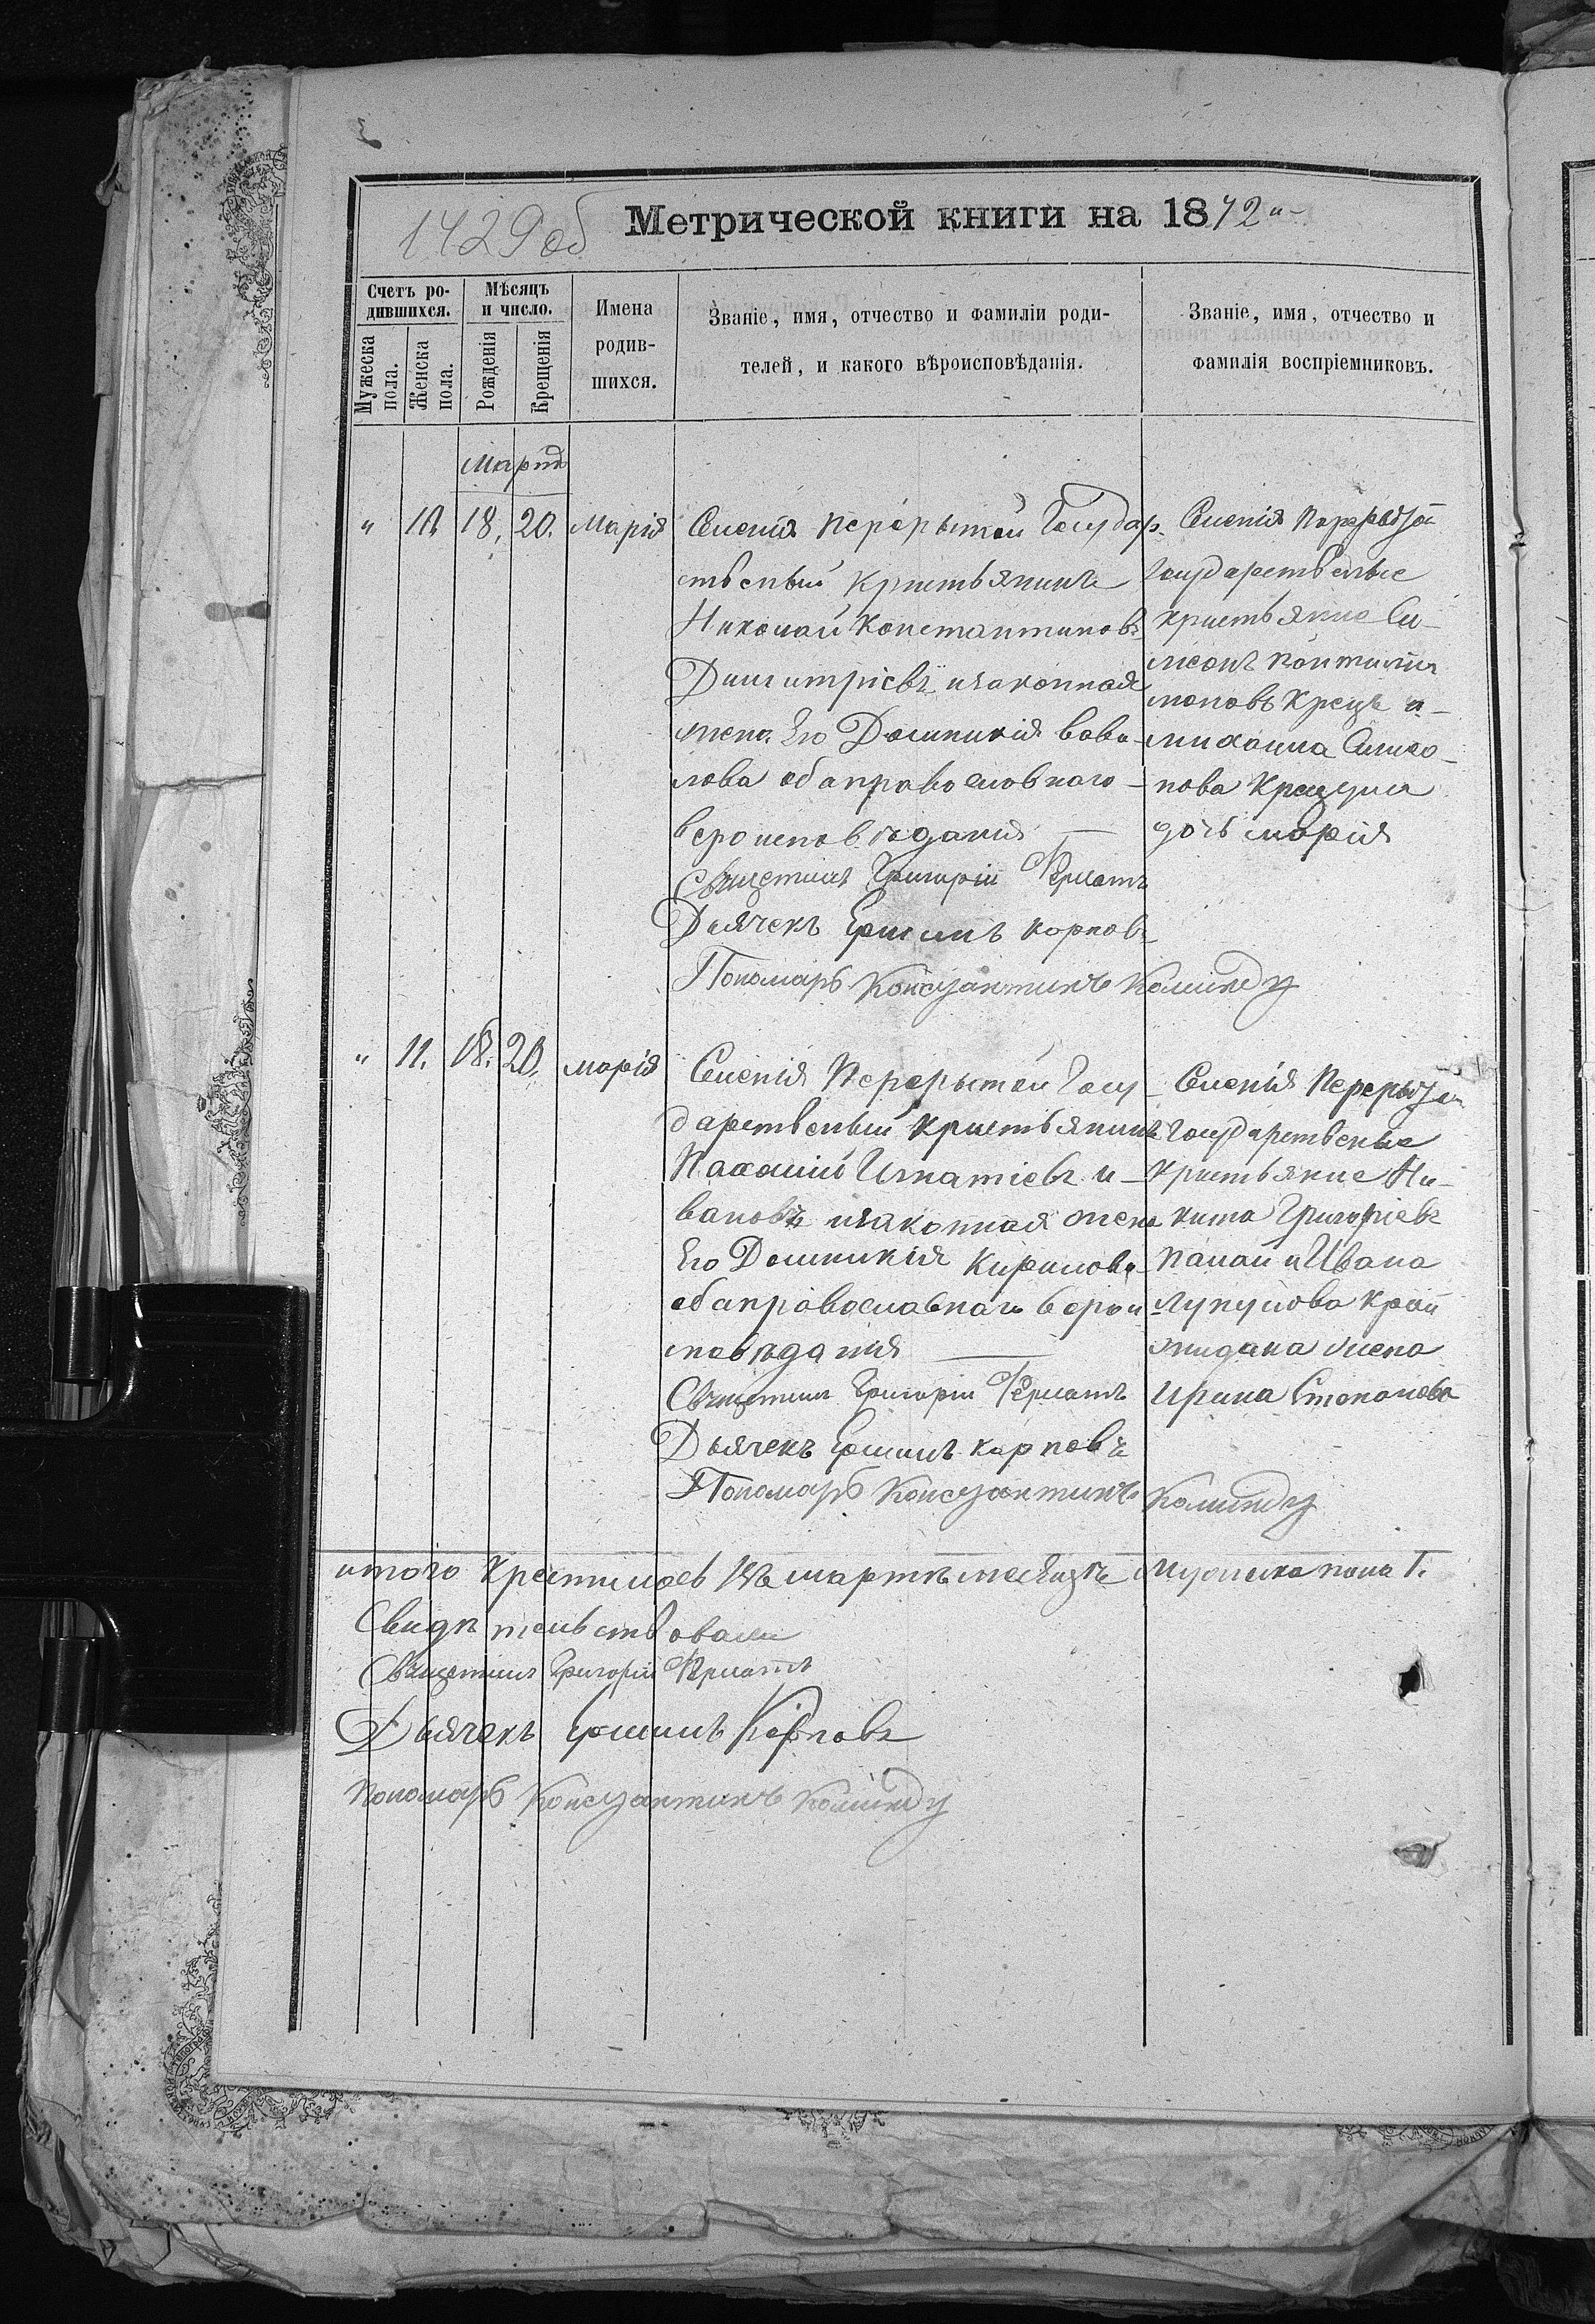 1429 об
Метрической книги на 1872 й
Счетъ ро-
дившихся.
Мужеска
пола.
Женска
пола.
Мѣсяцъ
и число.
Рожденія
Крещенія
Имена
родив-
шихся.
Званіе, имя, отчество и фамиліи роди-
телей, и какого вѣроисповѣданія.
Званіе, имя, отчество и
фамилія воспріемниковъ.
Мартъ
" 10. 18. 20. Марія
Селенія Перерытой Государ-
ственый Кристьянинъ
Николай Константиновъ
Димитріевъ изаконная
жена Его Домникія Вави-
лова оба православнаго
вероисповѣданія
Священникъ Григорій
Дьячекъ Карповъ
Пономарь Константинъ
Селенія Перерытой
Государственые
кристьяне Си-
меонъ
и
Михаила Симео-
нова
дочь Марія
" 11. 18. 20. Марія
Селенія Перерытой Госу-
дарственый Кристьянинъ
Пахомій Игнатіевъ И-
вановъ изаконная жена
Его Домникія Кирилова
оба православнаго верои
поведания
Священникъ Григорій
Дьячекъ Карповъ
Пономарь Константинъ
Селенія Перерытой
Государственые
Кристьяне Ни-
кита Григоріевъ
и Ивана
жена
Ирина Степанова
итого Крестилось въ мартѣ месяцѣ мужеска пола 1.
Свидѣтельствовали
Священникъ Григорій
Дьячекъ Карповъ
Пономарь Константинъ